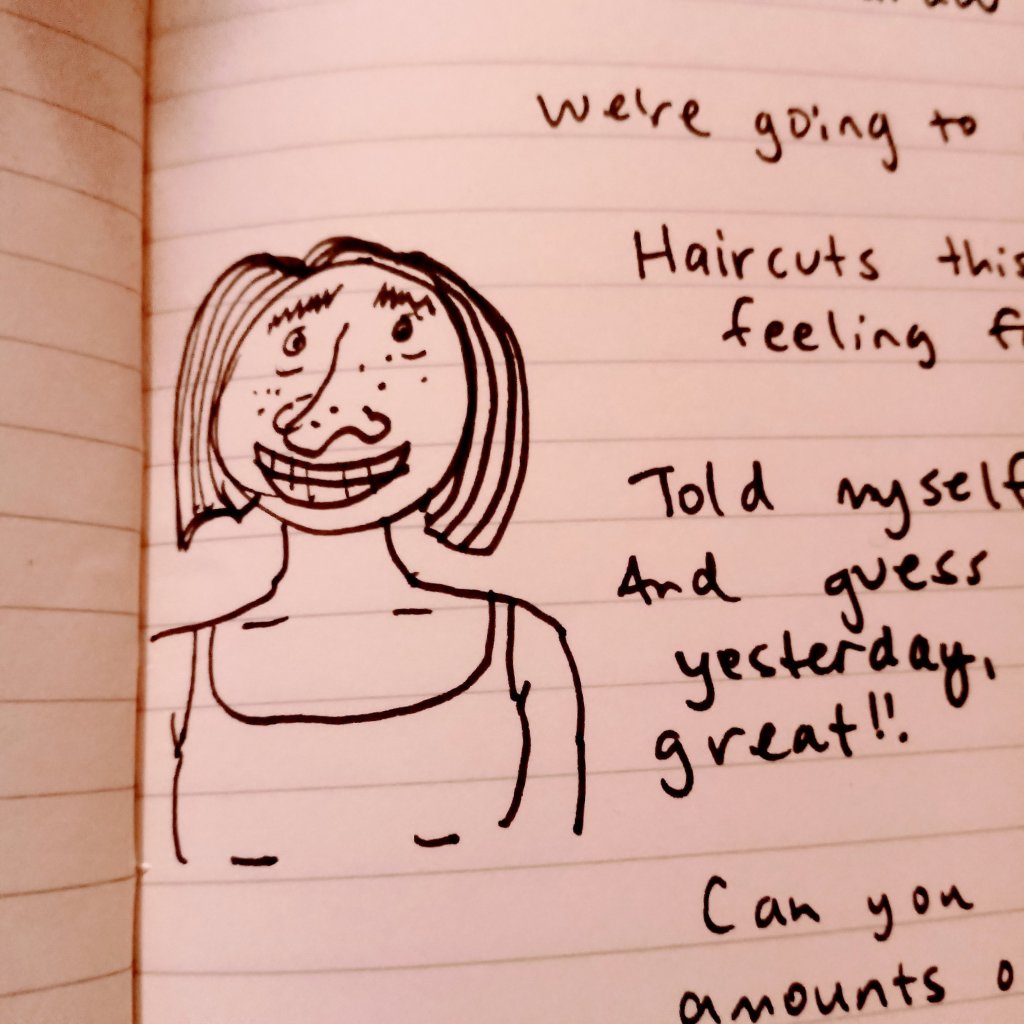 We're going to
Haircuts this
feeling f
Told myself
And guess
yesterday,
great!!
Can you
amounts o